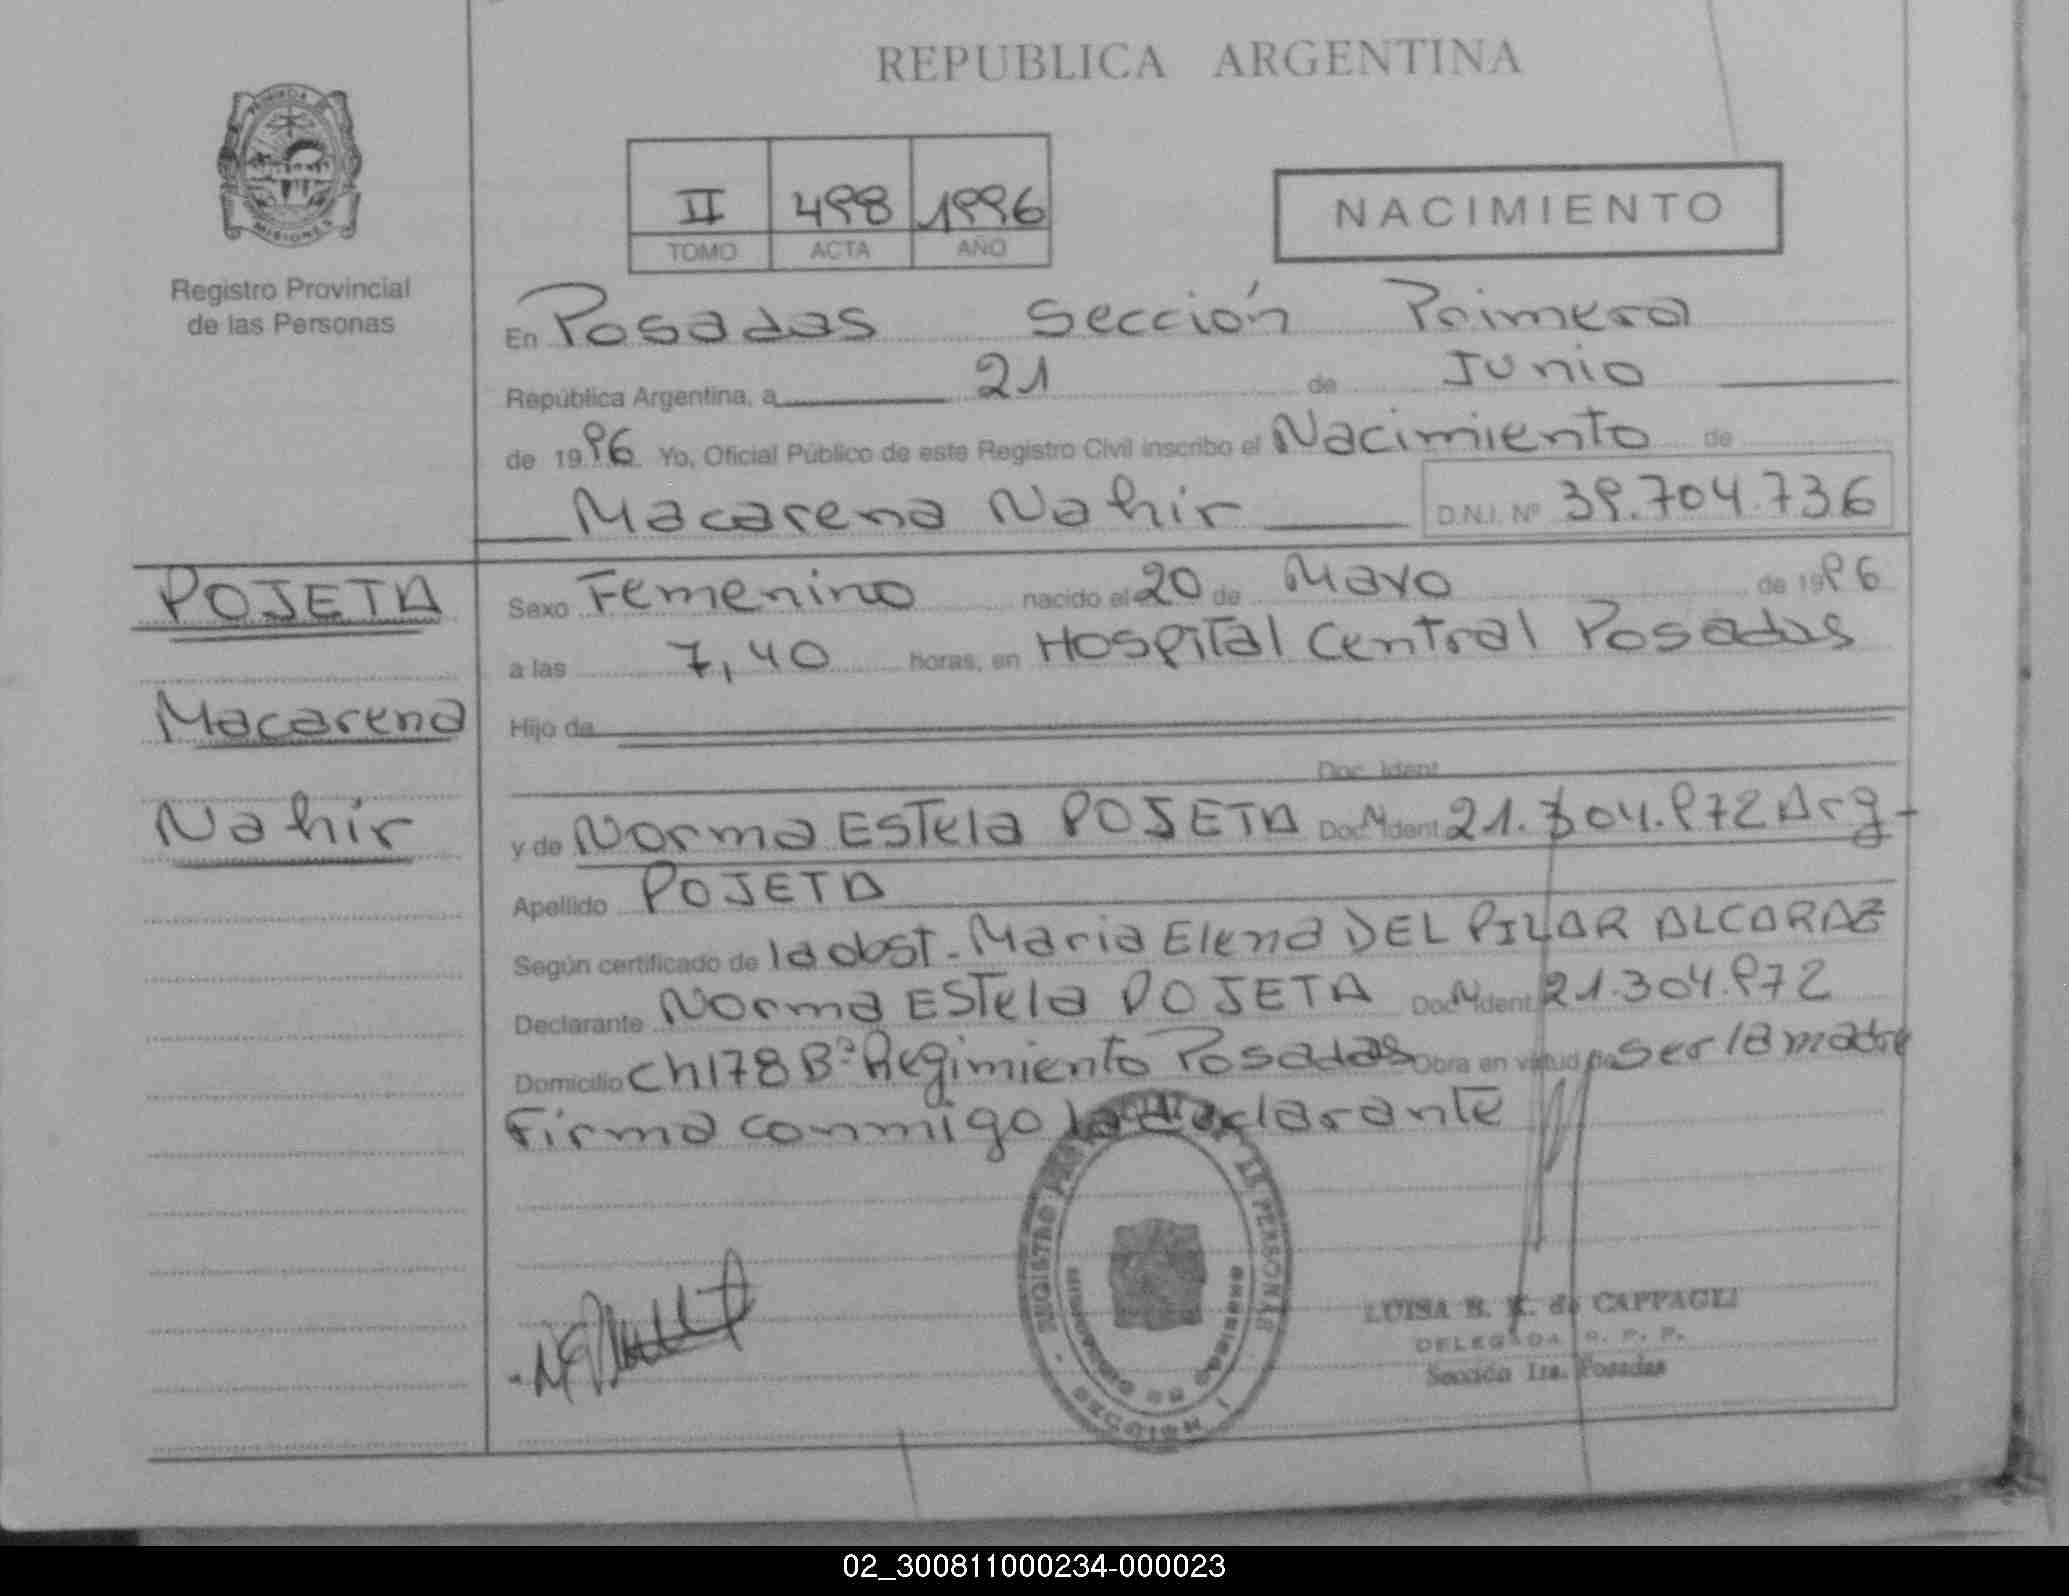 REPUBLICA ARGENTINA
PROVINCIA DE
MISIONES
Registro Provincial
de las Personas
II 498 1996
TOMO ACTA AÑO
NACIMIENTO
En Posadas Sección Primera
República Argentina, a 21 de Junio
de 1996 Yo, Oficial Público de este Registro Civil inscribo el Nacimiento de
Macarena Nahir D.N.I. Nº 39.704.736
POJETA
Macarena
Nahir
Sexo Femenino nacido el 20 de Mayo de 1996
a las 7,40 horas, en Hospital Central Posadas
Hijo de
Doc. Ident.
y de Norma Estela POJETA Doc. Ident. 21.304.972 Arg-
Apellido POJETA
Según certificado de la obst. Maria Elena DEL PILAR ALCARAZ
Declarante Norma Estela POJETA Doc. Ident. 21.304.972
Domicilio Ch 178 Bº Regimiento Posadas Obra en virtud de ser la madre
Firma conmigo la declarante
REGISTRO DE LAS PERSONAS
MISIONES
LUISA de CAPPAGLI
DELEGADA R. P. P.
Sección 1ra. Posadas
02_300811000234-000023